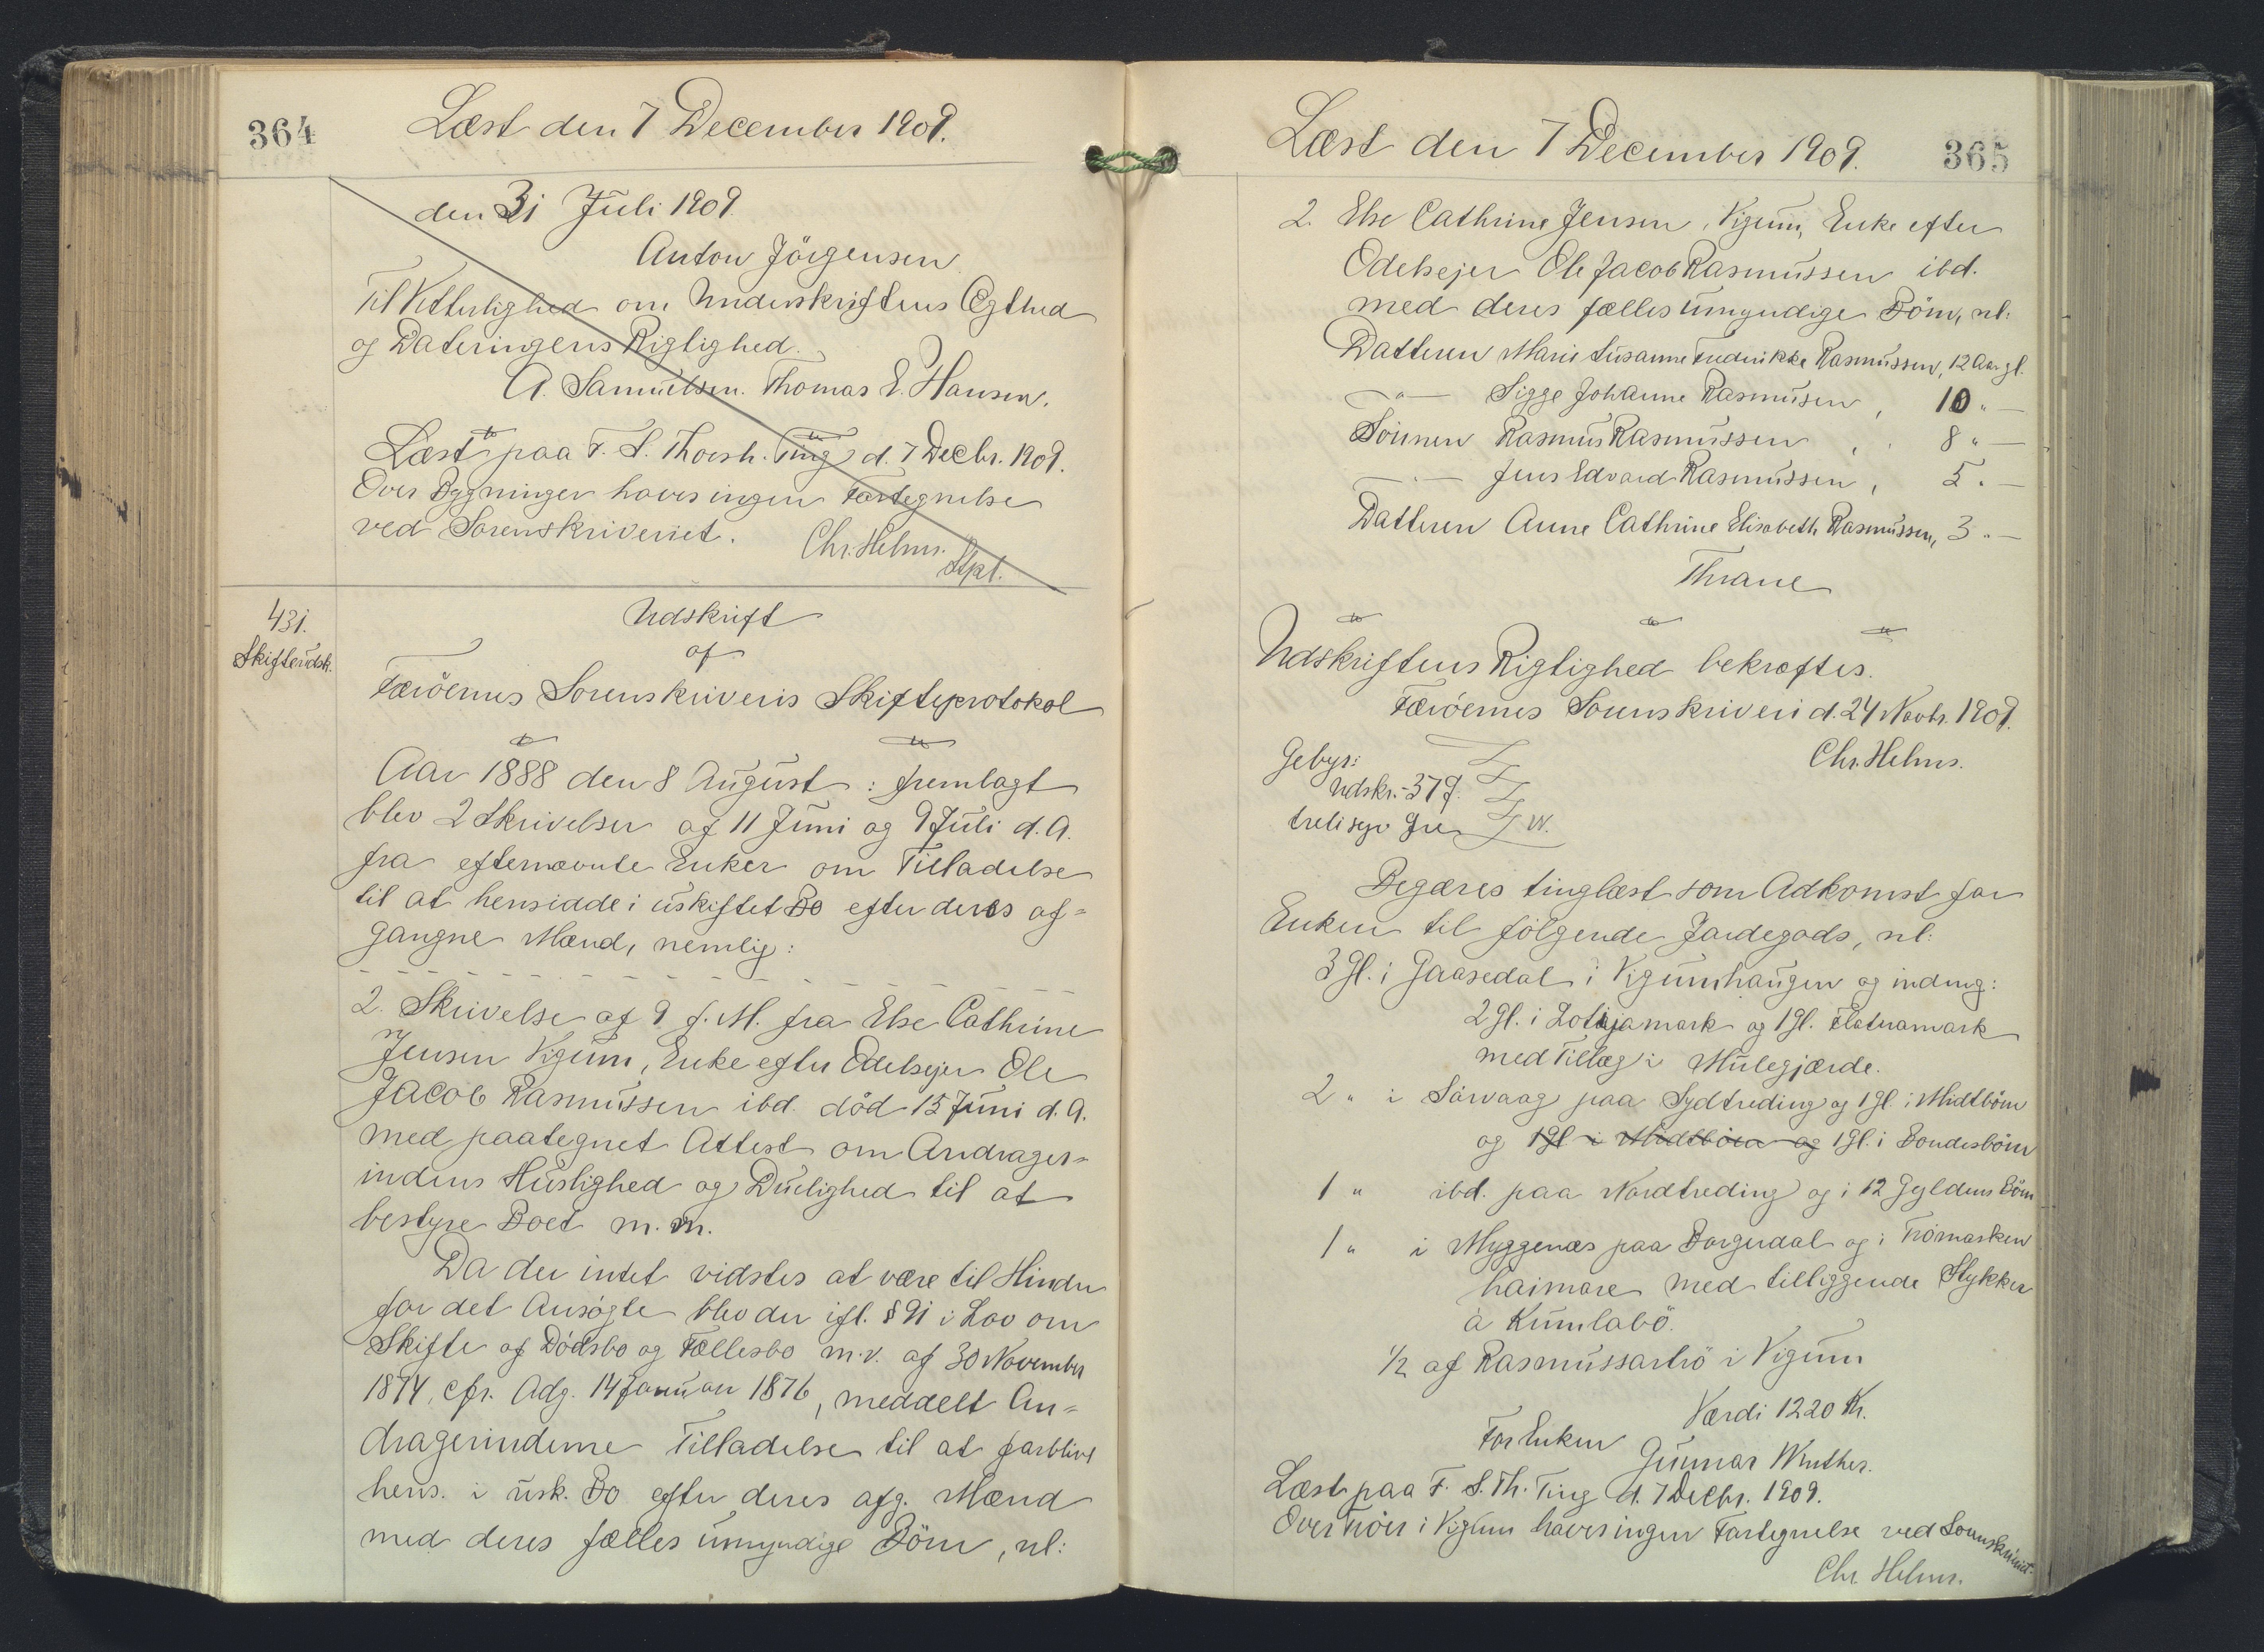 364
Læst den 7 December 1909.
den 31 Juli 1909.
Anton Jörgensen
Til Vitterlighed om Underskriftens Ægthed
og Dateringens Rigtighed.
A. Samuelsen. Thomas E. Hansen.
Læst paa F. S. Thorsh. Ting d. 7 Decbr. 1909.
Over Bygninger haves ingen Fortegnelse
ved Sorenskriveriet.
Chr. Helms.
Stpl.
431.
Skifteudsk.
Udskrift
af
Færöernes Sorenskriveris Skifteprotokol
Aar 1888 den 8 August : fremlagt
blev 2 Skrivelser af 11 Juni og 9 Juli d. A.
fra efternævnte Enker om Tilladelse
til at hensidde i uskiftet Bo efter deres af=
gangne Mænd, nemlig:
2. Skrivelse af 9 f. M. fra Else Cathrine
Jensen Vigum, Enke efter Odelsejer Ole
Jacob Rasmussen ibd. död 15 Juni d. A.
med paategnet Attest om Andrager=
indens Huslighed og Duelighed til at
bestyre Boet m. m.
Da der intet vidstes at være til Hinder
for det Ansögte blev der ifl. § 91 i Lov om
Skifte af Dödsbo og Fællesbo m. v. af 30 November
1874, cfr. Adg. 14 Januar 1876, meddelt An=
dragerinderne Tilladelse til at forblive
hens. i usk. Bo efter deres afg. Mænd
med deres fælles umyndige Börn, nl:
Læst den 7 December 1909.
365
2. Else Cathrine Jensen, Vigum, Enke efter
Odelsejer Ole Jacob Rasmussen ibd.
med deres fælles umyndige Börn, nl:
Datteren Marie Susanne Frederikke Rasmussen, 12 Aar gl.
— " — Sigge Johanne Rasmussen, 10 " —
Sönnen Rasmus Rasmussen, 8 " —
— " — Jens Edvard Rasmussen, 5 " —
Datteren Anne Cathrine Elisabeth Rasmussen, 3 " —
Thrane
Udskriftens Rigtighed bekræftes.
Færöernes Sorenskriveri d. 24 Novbr. 1909.
Chr. Helms.
Gebyr:
Udskr. - 37
tretisyv Øre W.
Begæres tinglæst som Adkomst for
Enken til fölgende Jordegods, nl:
3 Gl. i Gaasedal i Vigumhaugen og indmg:
2 Gl. i Lotijamark og 1 Gl. Flateramark
med Tillæg i Mulegjærde.
2 " i Sörvaag paa Sydtreding og 1 Gl. i Midtböen
og 1 Gl. i Midtböen og 1 Gl. i Bondesböen
1 " ibd. paa Nordtreding og i 12 Gyldens Böen
1 " i Myggenæs paa Borgerdal og i Trömarken
haimare med tilliggende Stykker
à Kumlabö.
1/2 af Rasmussartrö i Vigum
Værdi 1220 Kr.
For Enken
Gunnar Winther.
Læst paa F. S. Th. Ting d. 7 Decbr. 1909.
Over Tröer i Vigum haves ingen Fortegnelse ved Sorenskriveriet.
Chr. Helms.